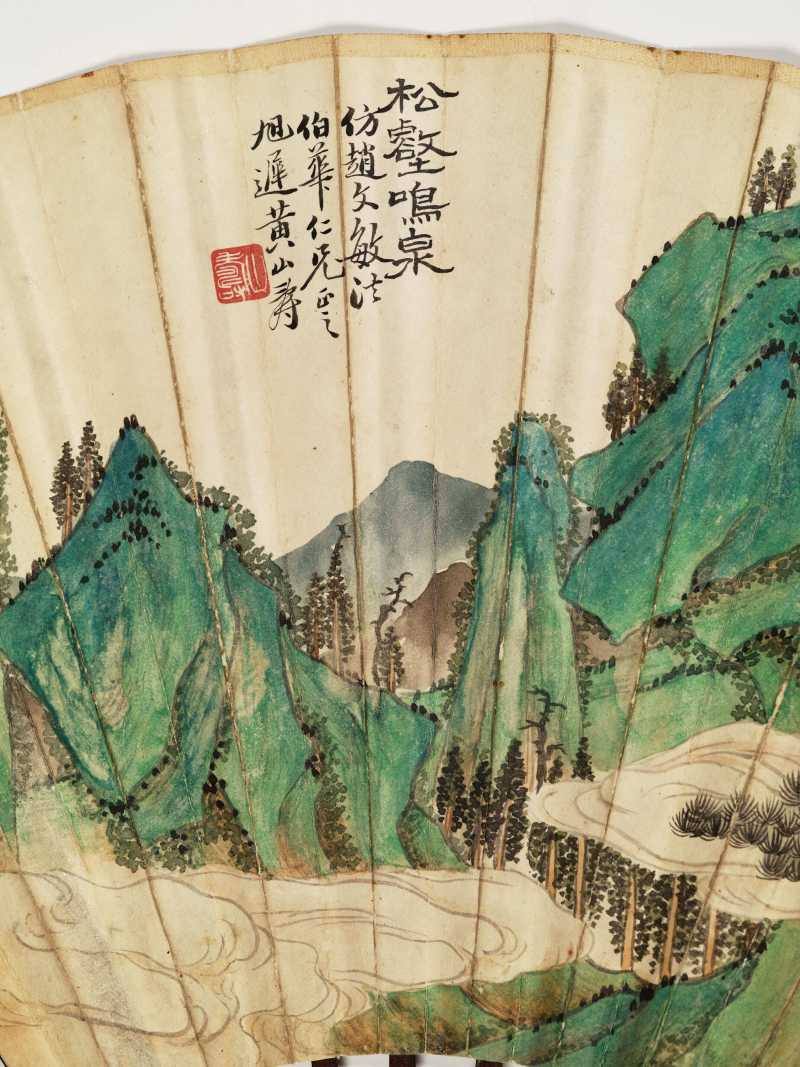 松壑鳴泉
仿趙文敏法
伯華仁兄正之
旭遲黃山壽